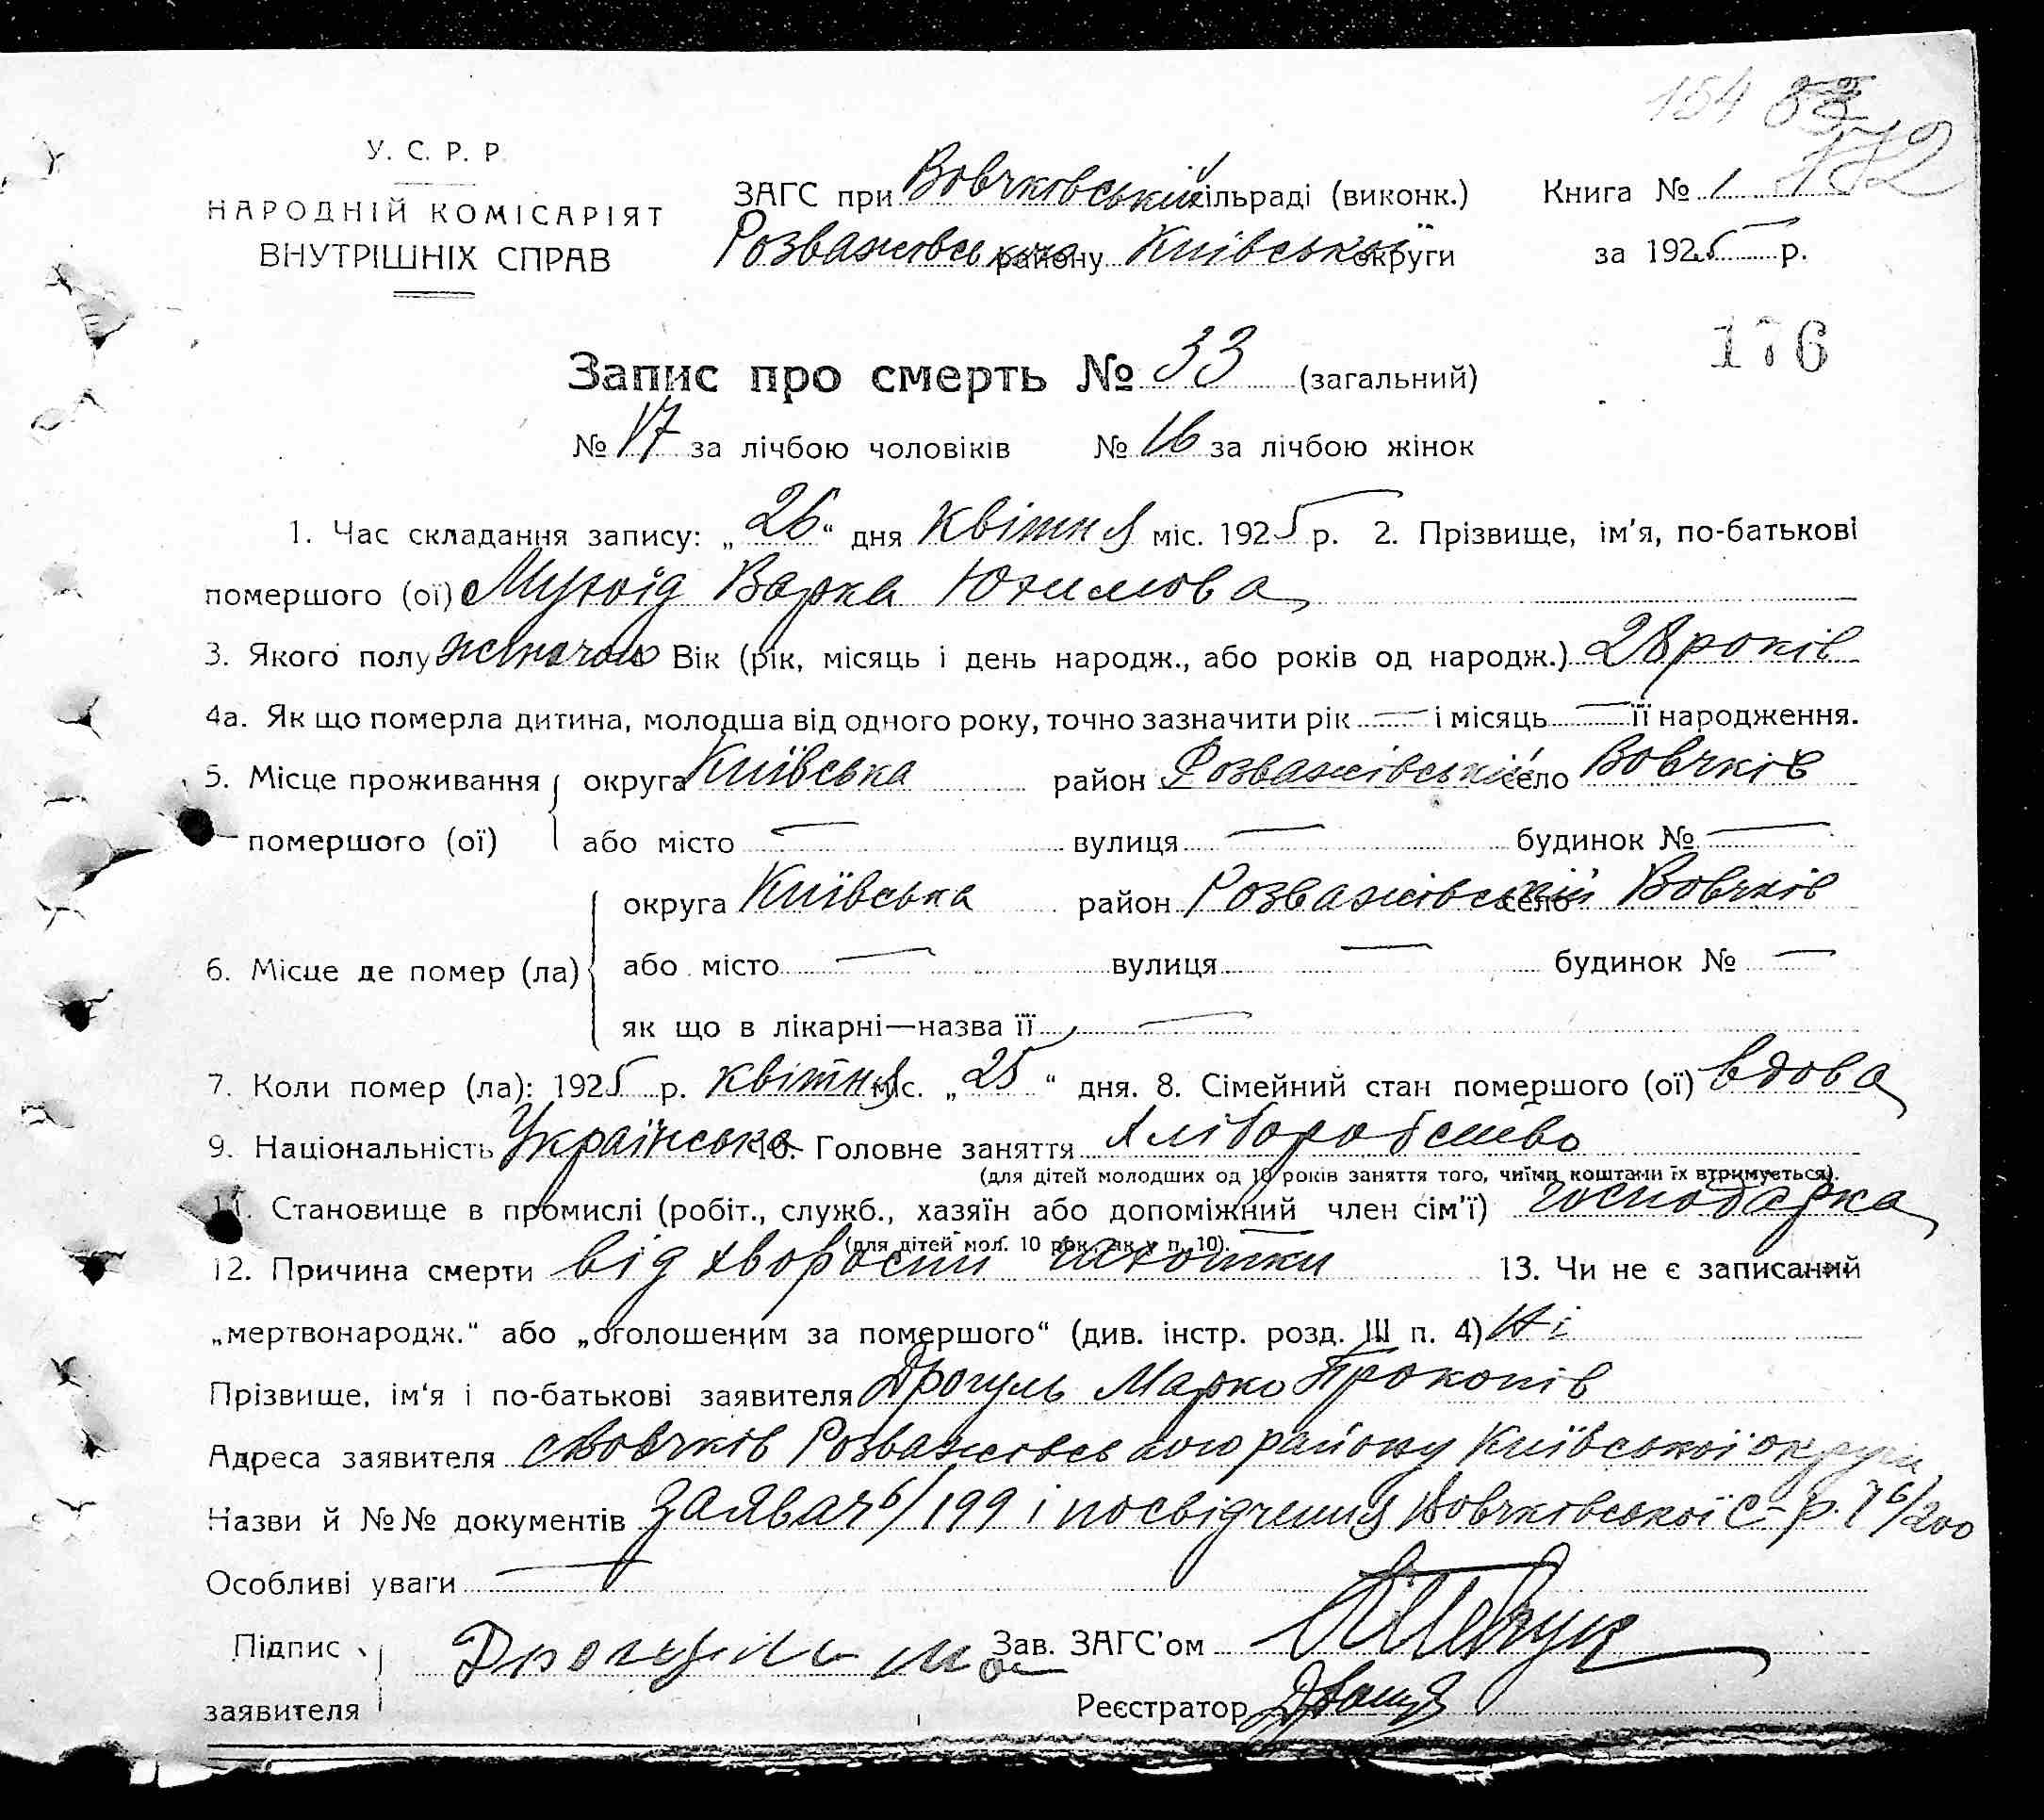 154 83
172
У. С. Р. Р.
НАРОДНІЙ КОМІСАРІЯТ
ВНУТРІШНІХ СПРАВ
ЗАГС при Вовчковській сільраді (виконк.)
Розважовського району Київської округи
Книга № 1
за 1925 р.
176
Запис про смерть № 33 (загальний)
№ 17 за лічбою чоловіків № 16 за лічбою жінок
1. Час складання запису: „26“ дня Квітня міс. 1925 р. 2. Прізвище, ім'я, по-батькові
помершого (ої) Мухоід Варка Юхимова
3. Якого полу жіночого Вік (рік, місяць і день народж., або років од народж.) 28 років
4а. Як що померла дитина, молодша від одного року, точно зазначити рік — і місяць — її народження.
5. Місце проживання округа Київська район Розважівський село Вовчків
помершого (ої) або місто — вулиця — будинок № —
округа Київська район Розважівській село Вовчків
6. Місце де помер (ла) або місто — вулиця — будинок № —
як що в лікарні—назва її —
7. Коли помер (ла): 1925 р. квітня міс. „25“ дня. 8. Сімейний стан помершого (ої) вдова
9. Національність Українська 10. Головне заняття Хліборобство
(для дітей молодших од 10 років заняття того, чиїми коштами їх втримується).
11. Становище в промислі (робіт., служб., хазяїн або допоміжний член сім'ї) господарка
(для дітей мол. 10 рок., як у п. 10).
12. Причина смерти від хворости сухотки 13. Чи не є записаний
„мертвонародж.“ або „оголошеним за помершого“ (див. інстр. розд. III п. 4) Ні
Прізвище, ім'я і по-батькові заявителя Дрогуль Марко Прокопів
Адреса заявителя с Вовчків Розважовського району Київської округи
Назви й №№ документів Заява ч 6/199 і посвідчення Вовчківської С-р. ч 6/200
Особливі уваги —
Підпис заявителя Дрогуль Ма Зав. ЗАГС'ом
Реєстратор